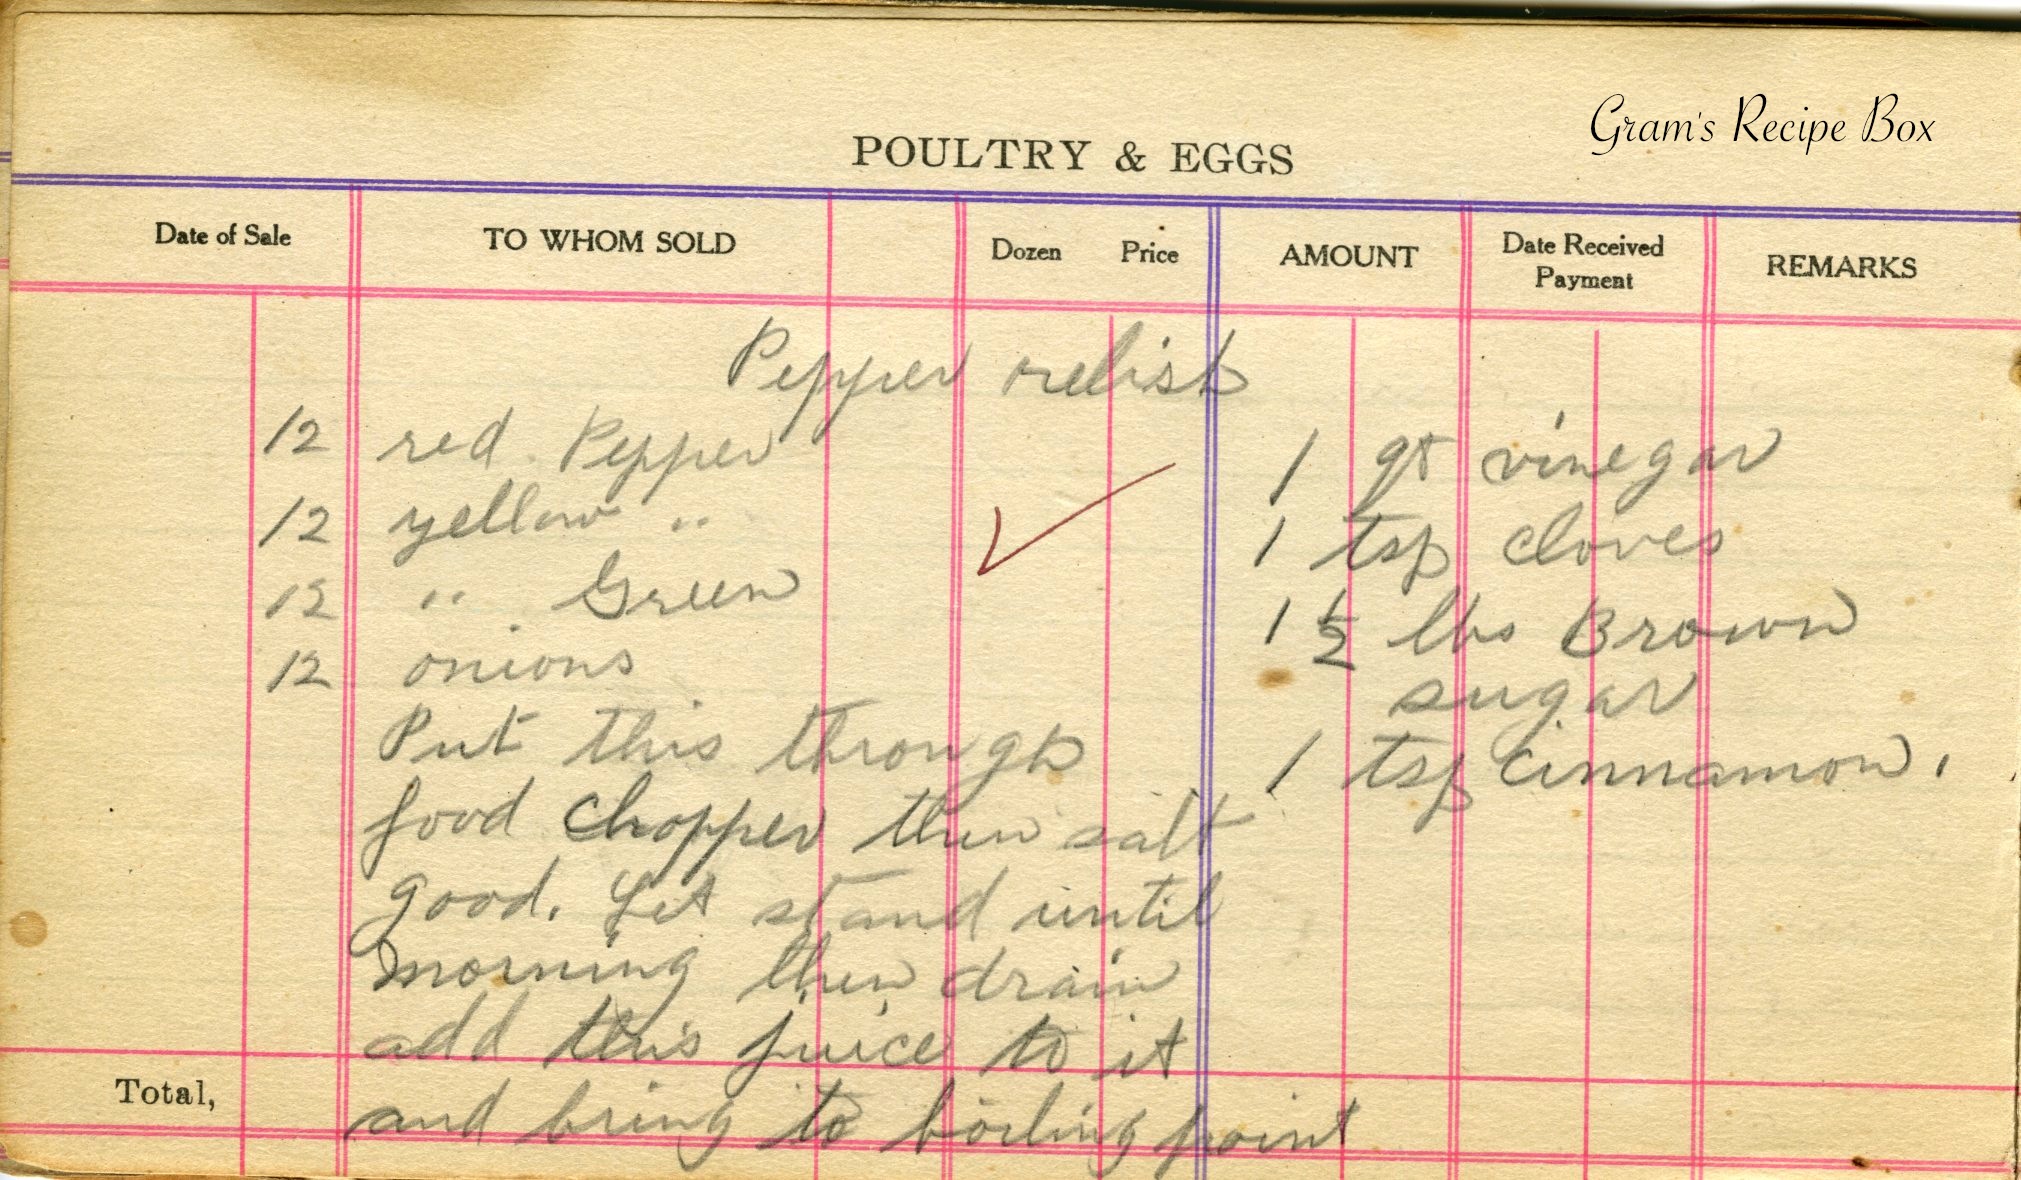 Gram's Recipe Box
POULTRY & EGGS
Date of Sale TO WHOM SOLD Dozen Price AMOUNT Date Received Payment REMARKS
Pepper relish
12 red Pepper
12 yellow "
12 " Green
12 onions
Put this through
food chopper then salt
good. Let stand until
morning then drain
add this juice to it
and bring to boiling point
1 qt vinegar
1 tsp cloves
1 1/2 lbs Brown
sugar
1 tsp cinnamon.
Total,